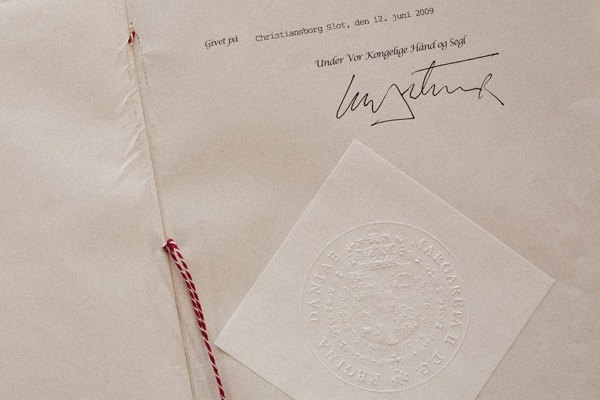 Givet på Christiansborg Slot, den 12. juni 2009
Under Vor Kongelige Hånd og Segl
MARGARETA II DG REGINA DANIAE